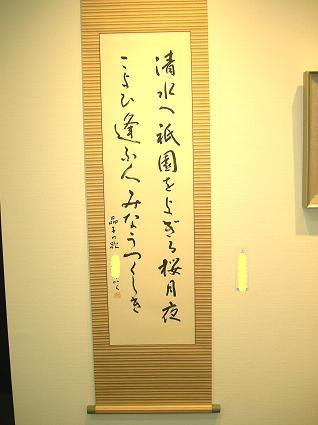 清水へ祇園をよぎる桜月夜
こよひ逢ふ人みなうつくしき
晶子の歌